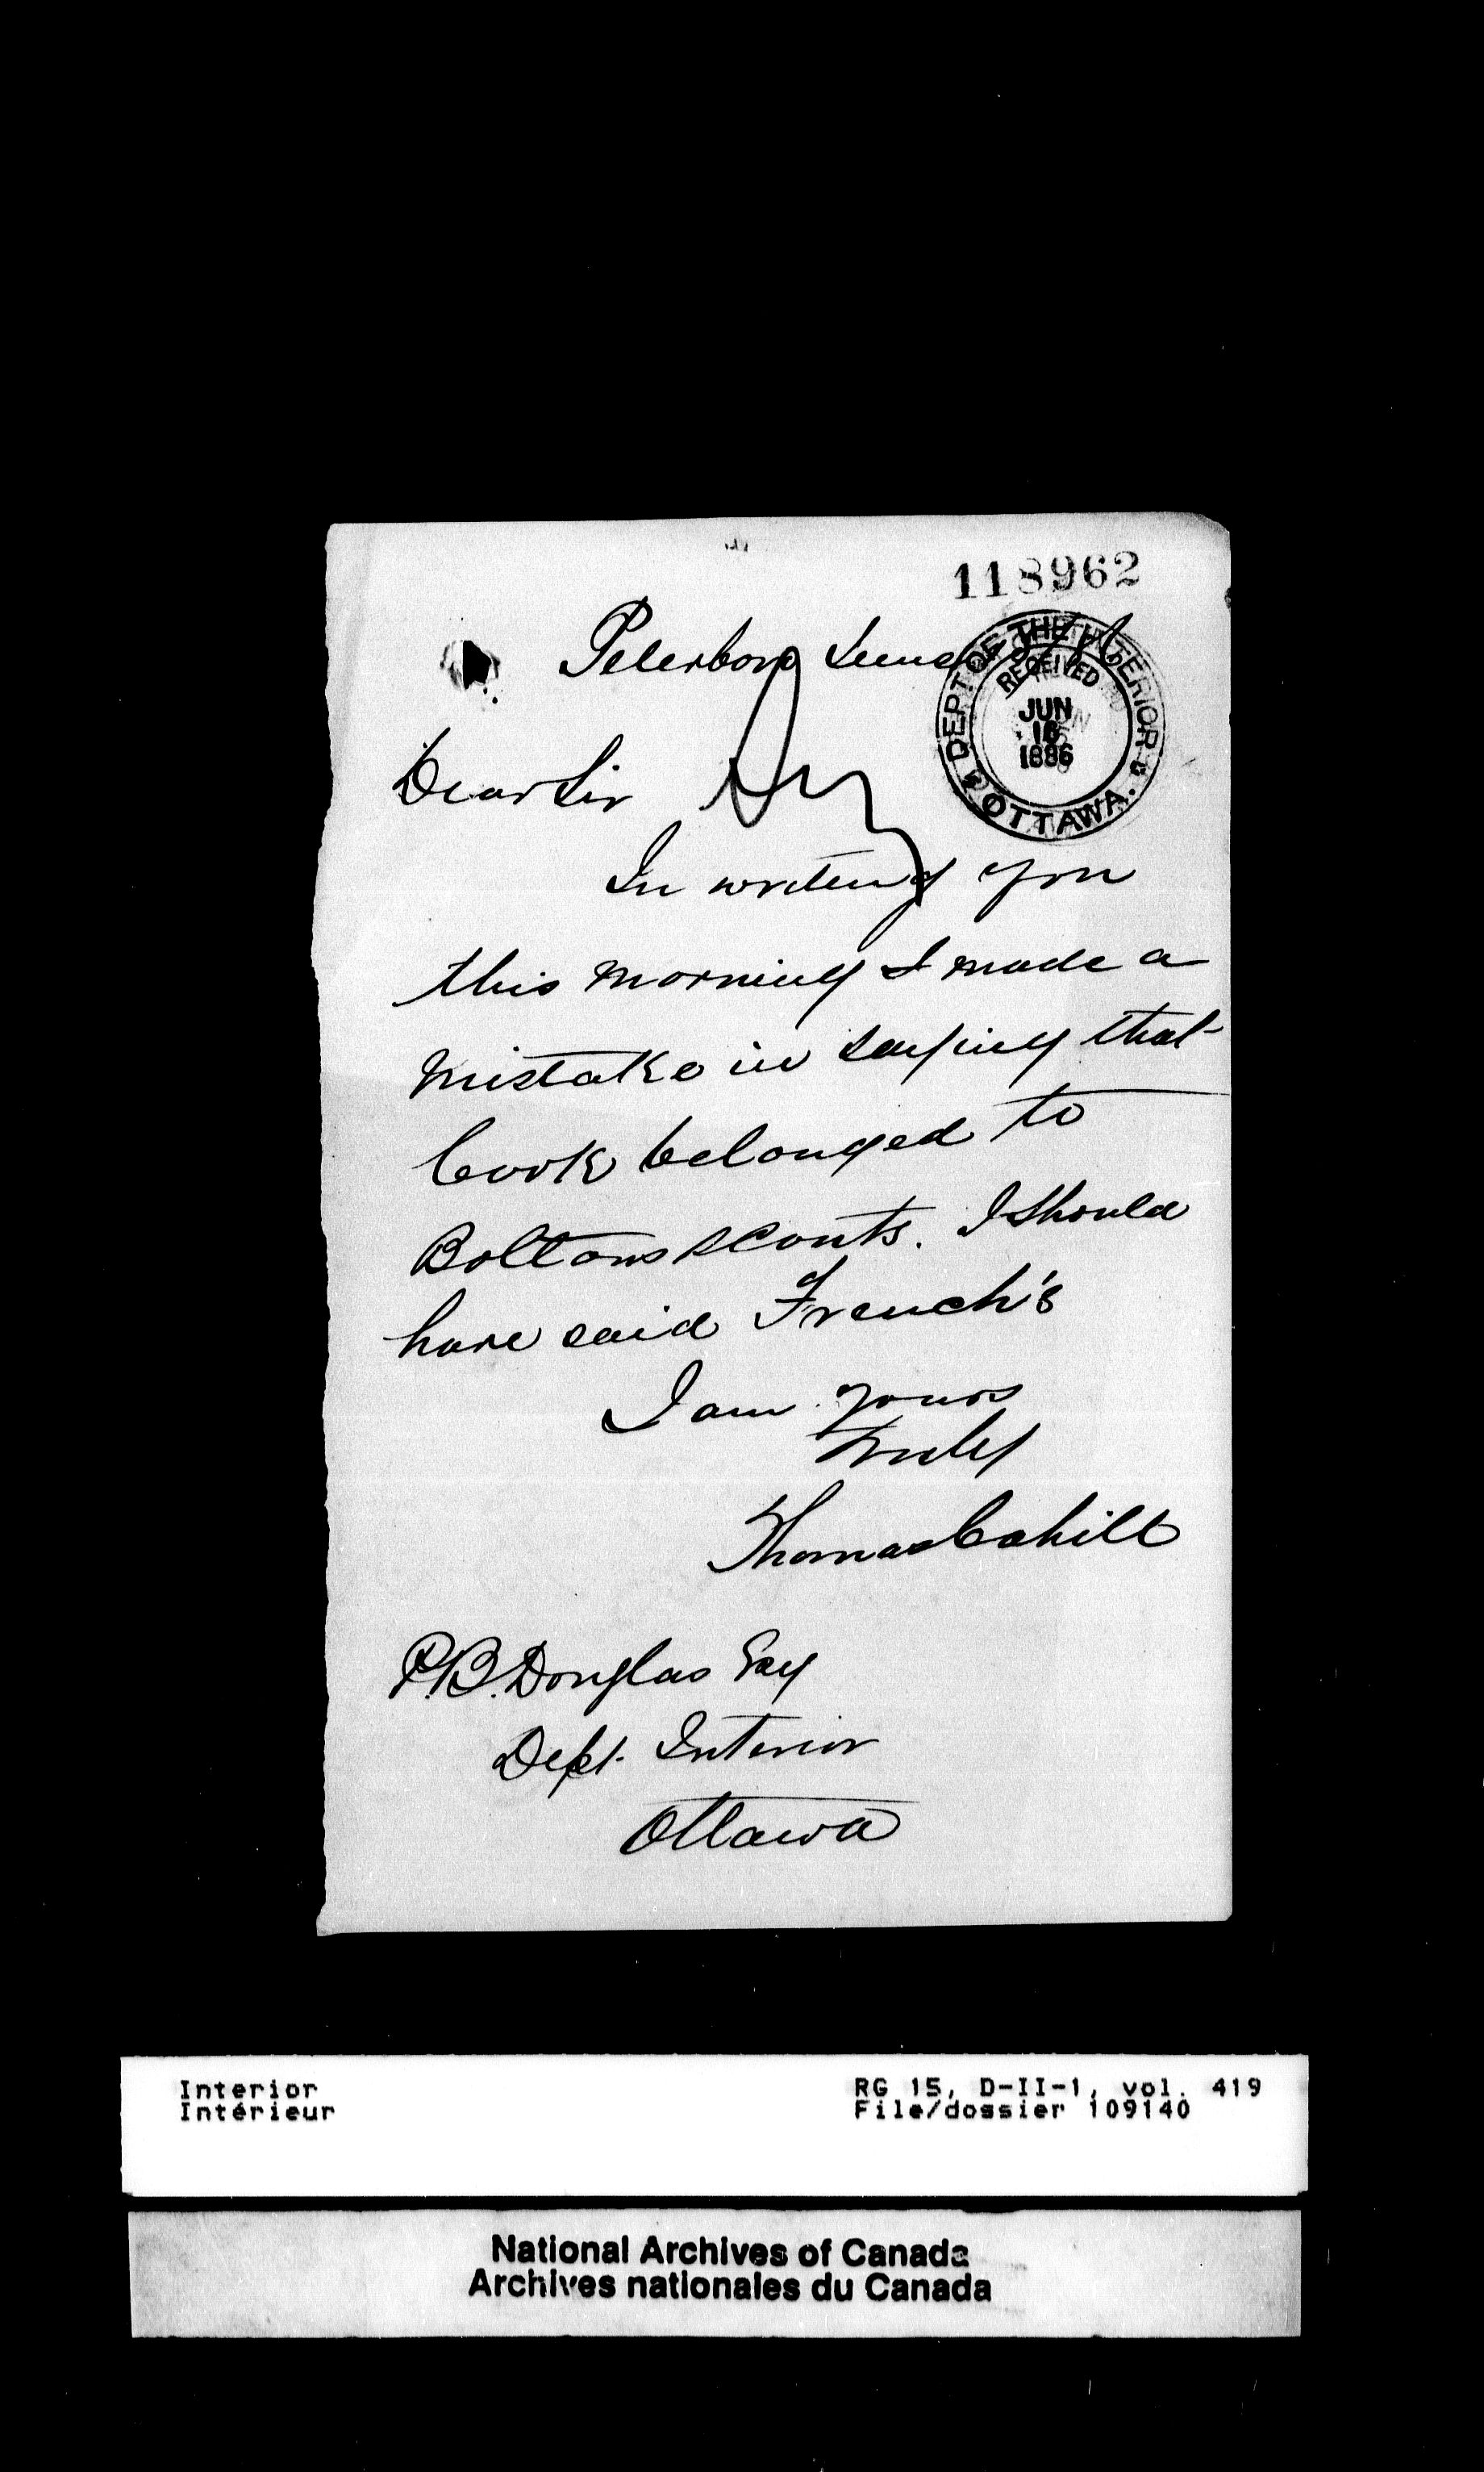 118962
Peterboro June
DEPT OF THE INTERIOR
RECEIVED
JUN
16
1886
OTTAWA.
Dear Sir
In writing you
this morning I made a
mistake in saying that
Cook belonged to
Boltons scouts. I should
have said French's
I am yours
truly
Thomas Cahill
P.B. Douglas Esq
Dept. Interior
Ottawa
Interior
Intérieur
RG 15, D-II-1, vol. 419
File/dossier 109140
National Archives of Canada
Archives nationales du Canada